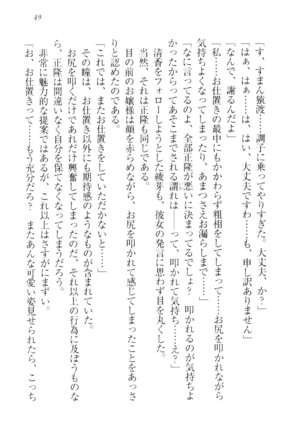 49
「す、すまん猿渡……調子に乗ってやりすぎた。大丈夫、か？」
「はぁ、はぁ……は、はい、大丈夫です……も、申し訳ありません」
「なんで、謝るんだよ」
「私……お仕置きの最中にもかかわらず粗相をしてしまって……お尻を叩かれながら
気持ちよくなってしまったり、あまつさえお漏らしまで……」
「なに言ってるのよ、全部正隆が悪いに決まってるでしょ？　叩かれるのが気持ちよ
かったからってあそこまでされる謂れは――って、叩かれて気持ち……え？」
清香をフォローしようとした綾芽も、彼女の発言に思わず目を丸くした。
当然、それは正隆も同じである。
目の前のお嬢様は顔を赤らめながら、お尻を叩かれて感じてしまったことをあっさ
りと認めたのである。
「これでは、またお仕置きをしていただかないと……」
その瞳は、お仕置き以外にも期待感のようなものが含まれていた。
お尻を叩くだけであれだけ興奮してしまったのだ、それ以上の行為に及ぼうものな
ら、正隆は間違いなく自分を保てなくなってしまうだろう。
非常に魅力的な提案ではあるが、これ以上はさすがにまずい。
「お、お仕置きって……もう充分だろ？　またあんな可愛い姿見せられたら、こっち